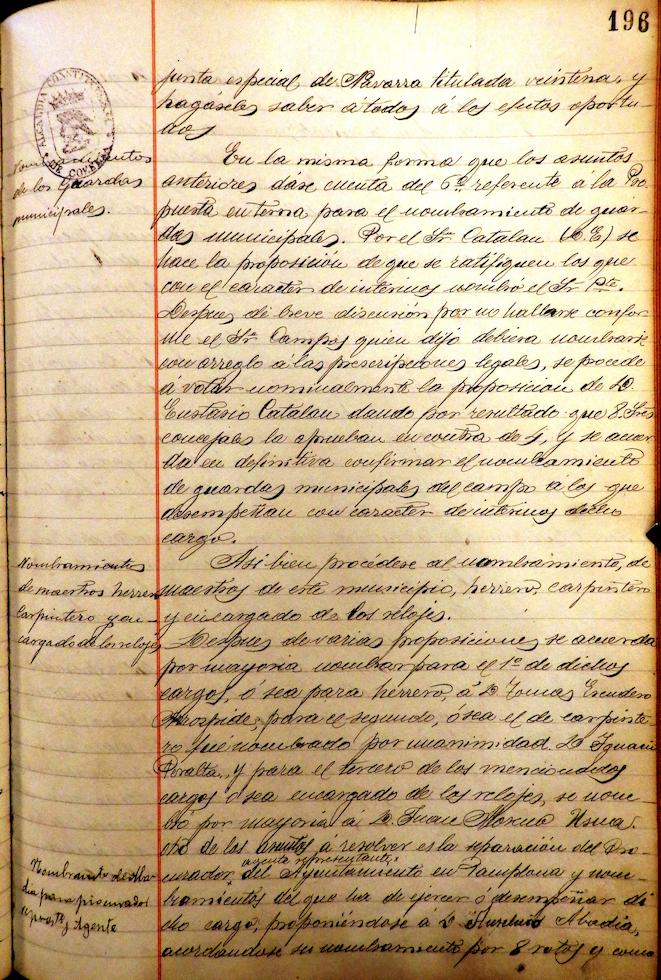 196
ALCALDIA CONSTITUCIONAL
DE CORELLA
junta especial de Navarra titulada veintena, y
hagáseles saber a todos á los efectos oportu-
nos
Nombramientos
de los Guardas
municipales.
En la misma forma que los asuntos
anteriores dáse cuenta del 6º referente á la Pro
puesta en terna para el nombramiento de guar
das municipales. Por el Sr Catalan (D. E) se
hace la proposición de que se ratifiquen los que
con el caracter de interinos nombró el Sr Pte.
Despues de breve discusión por no hallarse confor
me el Sr Campos quien dijo debiera nombrarse
con arreglo á las prescripciones legales, se procede
á votar nominalmente la proposicion de D.
Eustasio Catalan dando por resultado que 8 Sres
concejales la aprueban en contra de 4, y se acuer
da en definitiva confirmar el nombramiento
de guardas municipales del campo a los que
desempeñan con caracter de interinos dicho
cargo.
Nombramientos
de maestros herrero
Carpintero y en-
cargado de los relojes
Asi bien procédese al nombramiento, de
maestros de este municipio, herrero, carpintero
y encargado de los relojes.
Despues de varias proposiciones se acuerda
por mayoria nombrar para el 1º de dichos
cargos, ó sea para herrero, á D. Tomas Escudero
para el segundo, ó sea el de carpinte
ro fué nombrado por unanimidad D. Ignacio
Peralta, y para el tercero de los mencionados
cargos ó sea encargado de los relojes, se nom-
bró por mayoria á D. Juan
Nombrante de Aba-
dia para procurador
represte y Agente
Otro de los asuntos á resolver es la separación del Pro-
agente representante
curador del Ayuntamiento en Pamplona y nom-
bramientos del que ha de ejercer ó desempeñar di
cho cargo, proponiéndose á D. Abadia,
acordandose su nombramiento por 8 votos y como